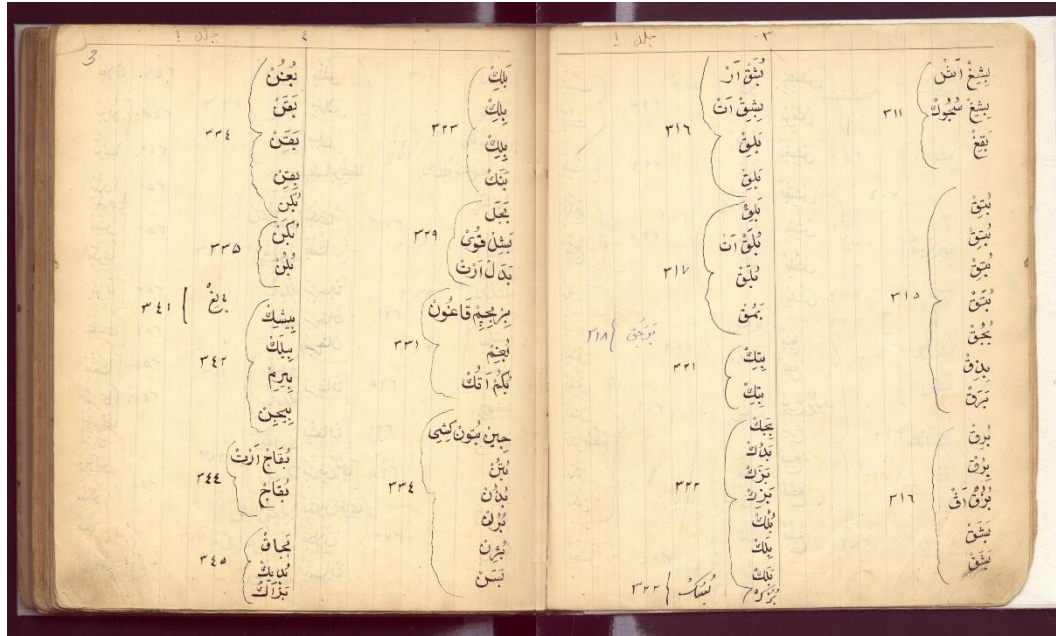 ٣ جلد ١
بِشِغْ اَتْنْ
بِشِغْ سُجُوكْ
بَقِغْ
٣١١
بُتِقْ
بُتِقْ
بُتِقْ
بُتَقْ
بُجُقْ
بِدِقْ
بَرَقْ
٣١٥
بُرِقْ
بِرُقْ
بُرُقْ اَقْ
بَشَقْ
بَشِقْ
٣١٦
بُشُقْ اَرْ
بِشِقْ اَتْ
بَلِقْ
بَلِقْ
٣١٦
بَلِقْ
بُلَقْ اَتْ
بُلَقْ
بَمُقْ
٣١٧
بَوجُقْ ٣١٨
بِتِكْ
بِتِكْ
٣٢١
بِجَكْ
بَدُكْ
بَزَكْ
بَزِكْ
بُلُكْ
بِلَكْ
بَلَكْ
٣٢٢
٣٢٢
٤ جلد ١
بَلِكْ
بِلِكْ
بِلِكْ
بَنَكْ
٣٢٣
بَجَلْ
بَشِلْ قُوىْ
بَدَلْ اَرْتْ
٣٢٩
بِرْ بِجِمْ قَاغُونْ
بُغِمْ
بُكُمْ اَتُكْ
٣٣١
جِينْ بُتُونْ كِشِى
بُتُنْ
بُدُنْ
بُرُنْ
بُرُنْ
بَسَنْ
٣٣٤
بُعُنْ
بَقَنْ
بَقَنْ
بِقِنْ
٣٣٤
بُكَنْ
بُكَنْ
بُلُنْ
٣٣٥
بَايِغْ ٣٤١
بِيشِكْ
بِيلِكْ
بِيرِمْ
بِيجِنْ
٣٤٢
بُقَاجْ اَرْتْ
بُقَاجْ
٣٤٤
بَجَاقْ
٣٤٥
3